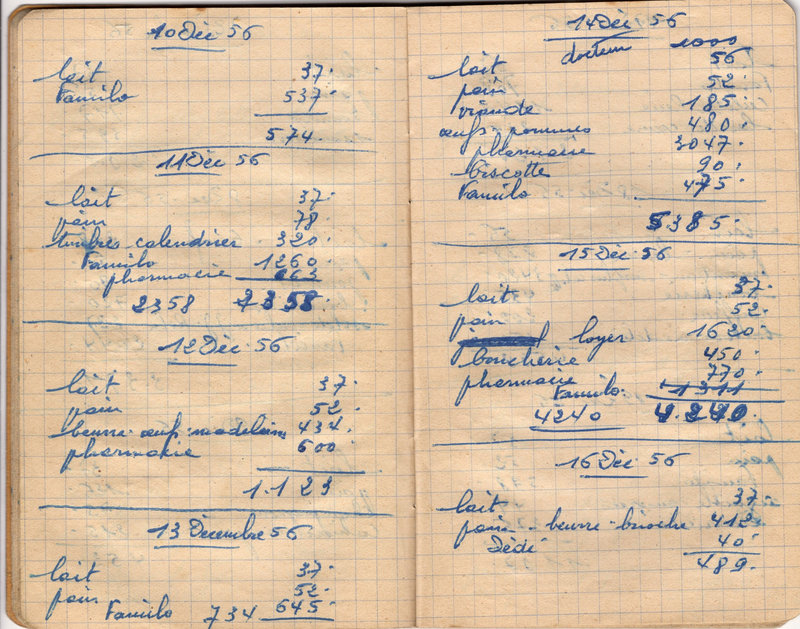 10 Déc 56
lait 37.
Familo 537.
574.
11 Déc 56
lait 37.
pain 78.
timbres-calendrier 320.
Familo 1260.
pharmacie 663
2358 2358.
12 Déc 56
lait 37.
pain 52.
beurre-oeuf-madeleine 434.
pharmacie 600.
1.123
13 Décembre 56
lait 37.
pain 52.
Familo 734 645.
14 Déc 56
docteur 1000
lait 56
pain 52.
viande 185.
oeufs-pommes 480.
pharmacie 3047.
biscotte 90.
Familo 475.
5385.
15 Déc 56
lait 37.
pain 52.
loyer 1620.
boucherie 450.
pharmacie 770.
Familo. 1311
4240 4.240.
16 Déc 56
lait 37.
pain beurre-brioche 412.
Dédé 40.
489.